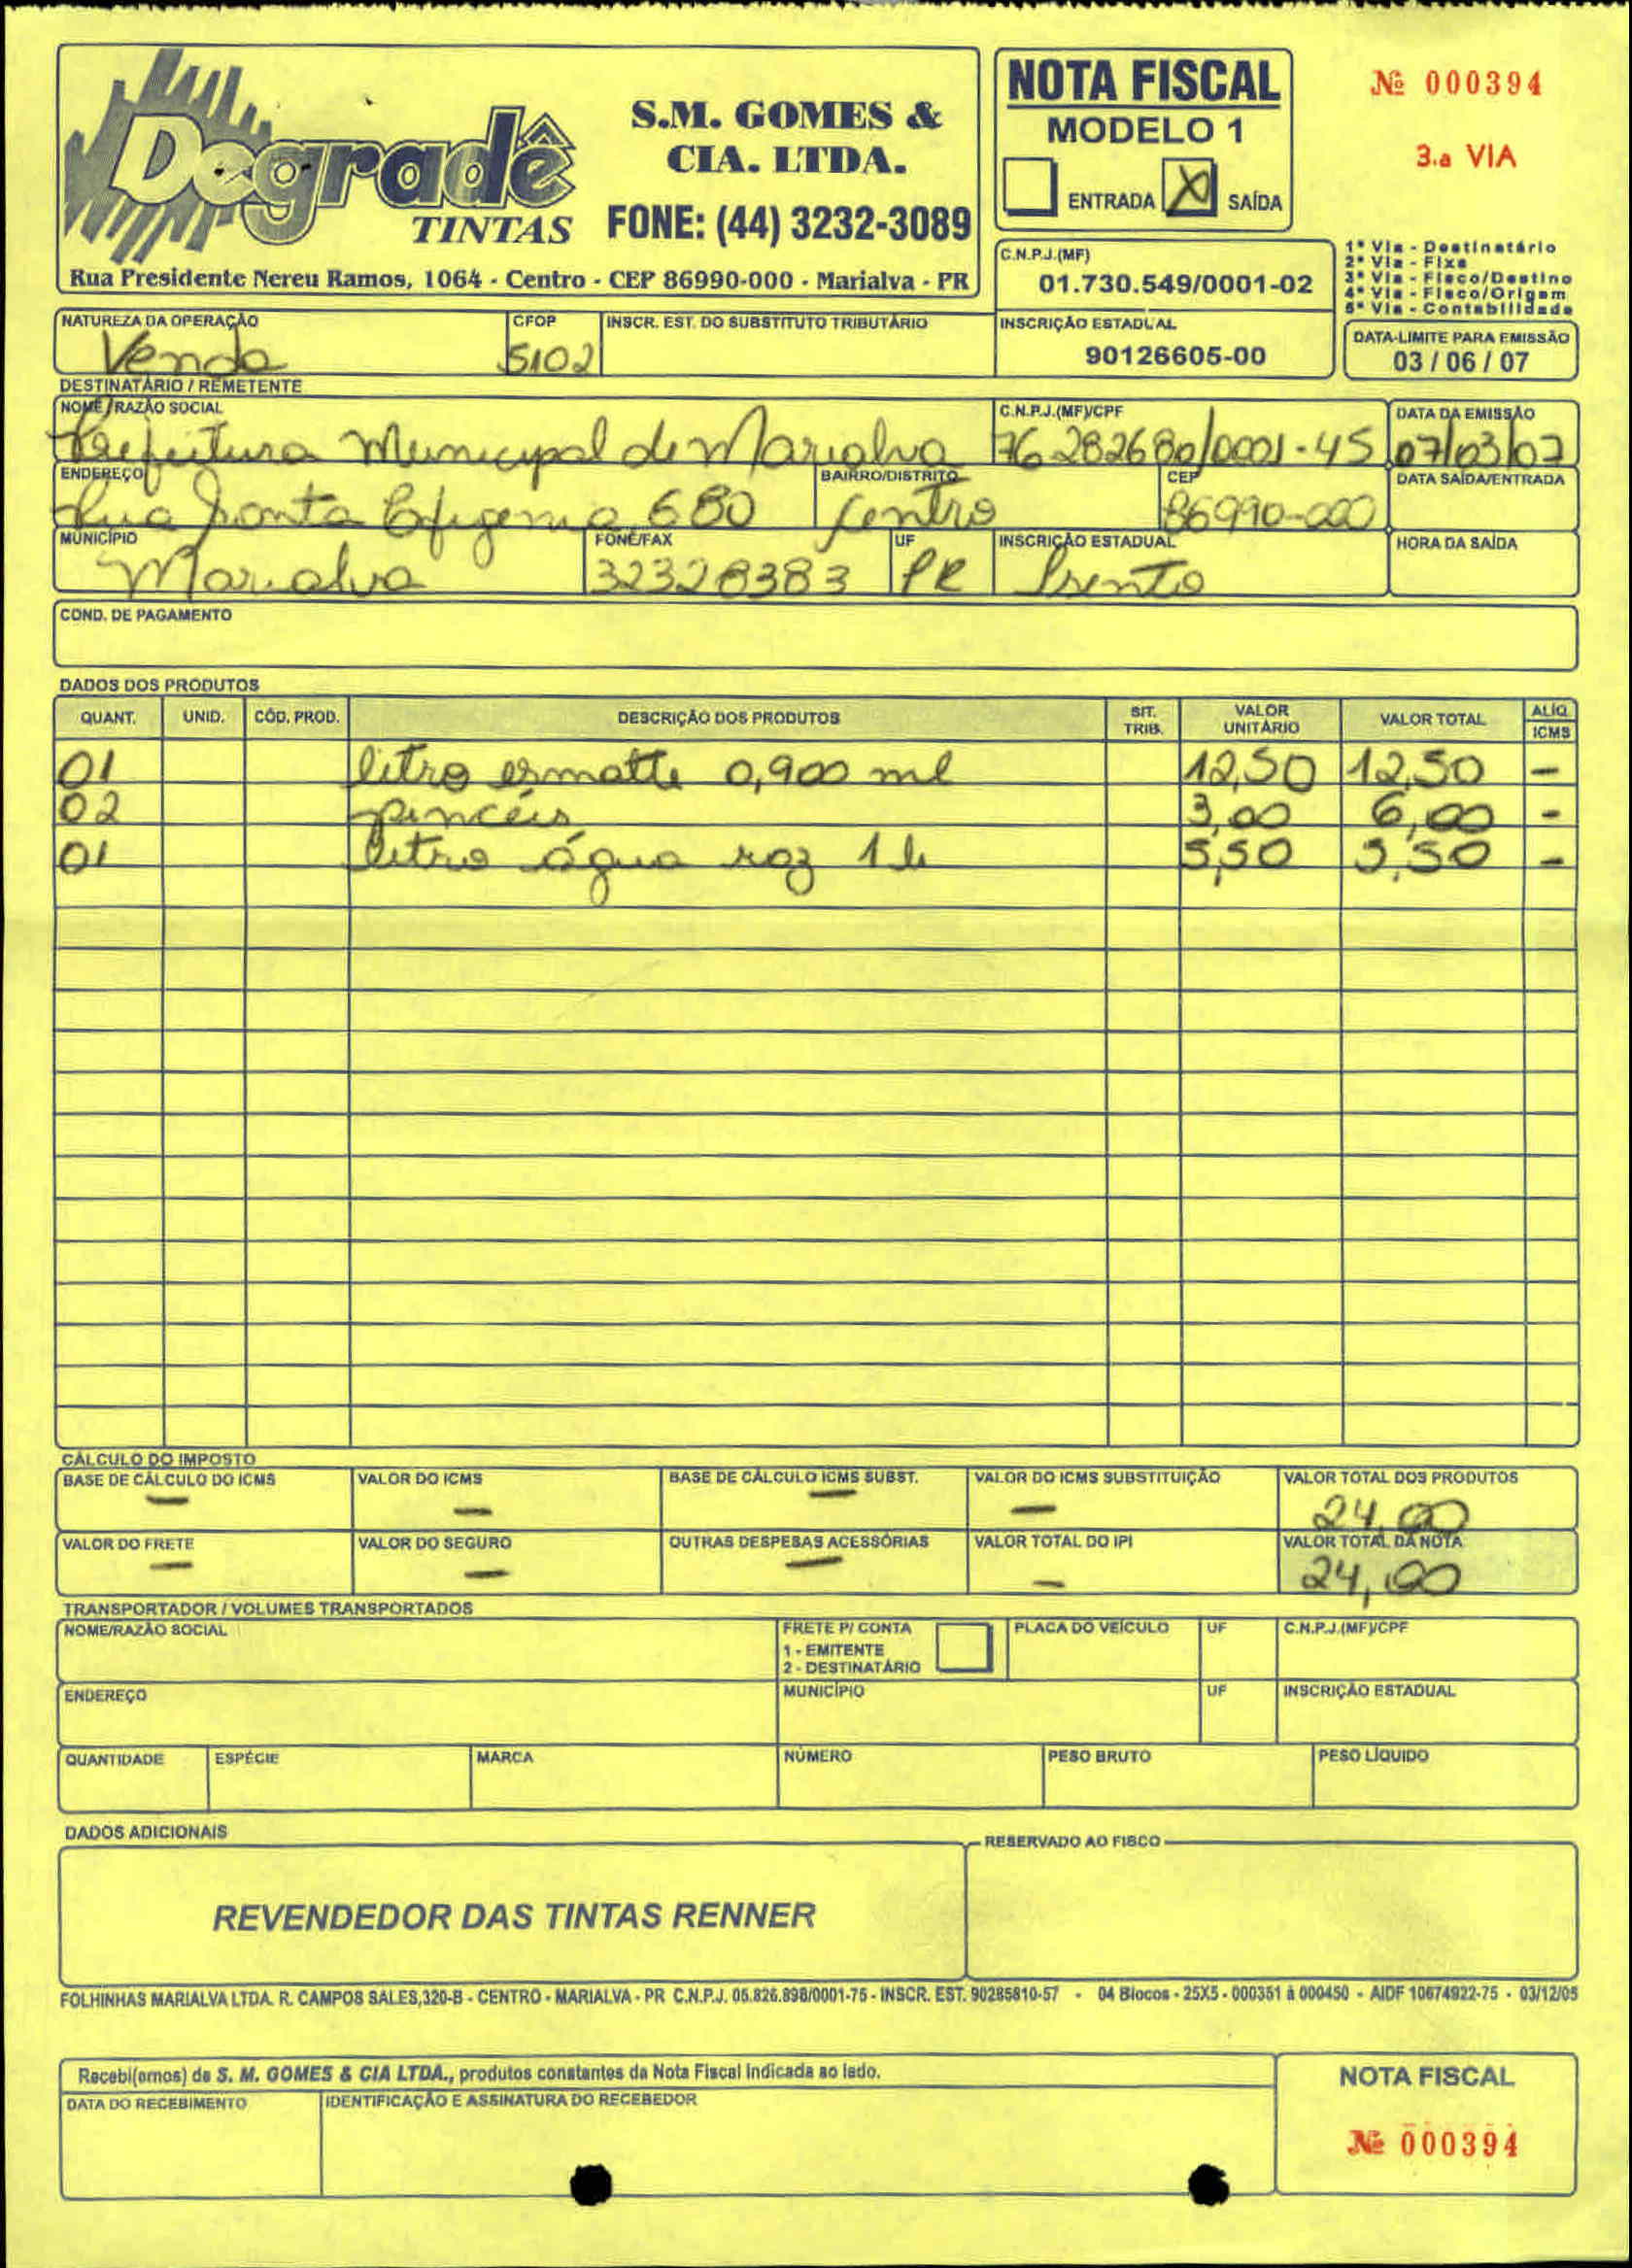 Degradê
TINTAS
S.M. GOMES &
CIA. LTDA.
FONE: (44) 3232-3089
Rua Presidente Nereu Ramos, 1064 - Centro - CEP 86990-000 - Marialva - PR
NOTA FISCAL
MODELO 1
ENTRADA X SAÍDA
Nº 000394
3.a VIA
C.N.P.J.(MF)
01.730.549/0001-02
1ª Via - Destinatário
2ª Via - Fixa
3ª Via - Fisco/Destino
4ª Via - Fisco/Origem
5ª Via - Contabilidade
NATUREZA DA OPERAÇÃO CFOP INSCR. EST. DO SUBSTITUTO TRIBUTÁRIO INSCRIÇÃO ESTADUAL DATA-LIMITE PARA EMISSÃO
Venda 5102 90126605-00 03 / 06 / 07
DESTINATÁRIO / REMETENTE
NOME / RAZÃO SOCIAL C.N.P.J.(MF)/CPF DATA DA EMISSÃO
Prefeitura Municipal de Marialva 76282680/0001-45 07/03/07
ENDEREÇO BAIRRO/DISTRITO CEP DATA SAÍDA/ENTRADA
Rua Santa Efigenia 680 Centro 86990-000
MUNICÍPIO FONE/FAX UF INSCRIÇÃO ESTADUAL HORA DA SAÍDA
Marialva 32328383 PR Isento
COND. DE PAGAMENTO
DADOS DOS PRODUTOS
QUANT. UNID. CÓD. PROD. DESCRIÇÃO DOS PRODUTOS SIT. TRIB. VALOR UNITÁRIO VALOR TOTAL ALÍQ. ICMS
01 litro esmalte 0,900 ml 12,50 12,50 -
02 pincéis 3,00 6,00 -
01 litro água raz 1 lt 5,50 5,50 -
CÁLCULO DO IMPOSTO
BASE DE CÁLCULO DO ICMS VALOR DO ICMS BASE DE CÁLCULO ICMS SUBST. VALOR DO ICMS SUBSTITUIÇÃO VALOR TOTAL DOS PRODUTOS
- - - - 24,00
VALOR DO FRETE VALOR DO SEGURO OUTRAS DESPESAS ACESSÓRIAS VALOR TOTAL DO IPI VALOR TOTAL DA NOTA
- - - - 24,00
TRANSPORTADOR / VOLUMES TRANSPORTADOS
NOME/RAZÃO SOCIAL FRETE P/ CONTA PLACA DO VEÍCULO UF C.N.P.J.(MF)/CPF
1 - EMITENTE
2 - DESTINATÁRIO
ENDEREÇO MUNICÍPIO UF INSCRIÇÃO ESTADUAL
QUANTIDADE ESPÉCIE MARCA NÚMERO PESO BRUTO PESO LÍQUIDO
DADOS ADICIONAIS
RESERVADO AO FISCO
REVENDEDOR DAS TINTAS RENNER
FOLHINHAS MARIALVA LTDA. R. CAMPOS SALES,320-B - CENTRO - MARIALVA - PR C.N.P.J. 05.826.898/0001-75 - INSCR. EST. 90285810-57 - 04 Blocos - 25X5 - 000351 à 000450 - AIDF 10674922-75 - 03/12/05
Recebi(emos) de S. M. GOMES & CIA LTDA., produtos constantes da Nota Fiscal indicada ao lado.
DATA DO RECEBIMENTO IDENTIFICAÇÃO E ASSINATURA DO RECEBEDOR
NOTA FISCAL
Nº 000394